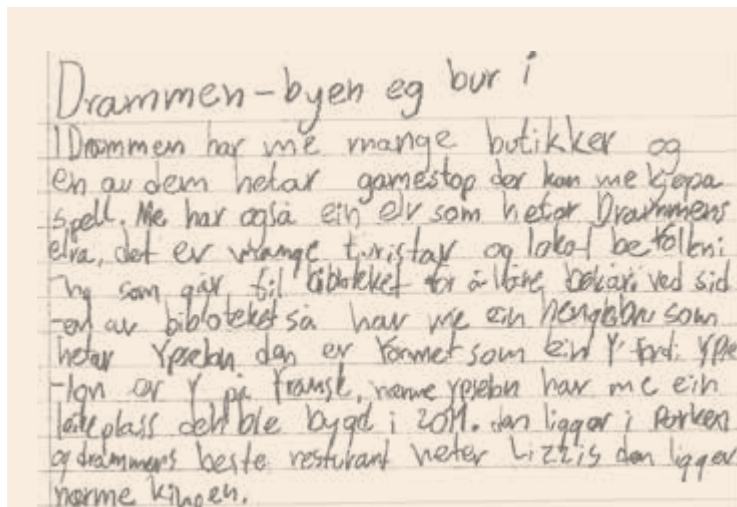 Drammen-byen eg bur i
I Drammen har me mange butikker og
en av dem hetar gamestop der kan me kjøpa
spell. Me har også ein elv som hetar Drammens
elva, det er mange turistar og lokal befolkni
-ng som går til biblioteket for å låne bøkar, ved sid
-en av biblioteket så har me ein hengebru som
hetar Ypselon dan er formet som ein Y fordi Ypse
-lon er Y på fransk, nærme ypselon har me ein
lekeplass deh ble bygd i 2011. dan liggar i Parken
og drammens beste resturant heter Lizzis dan ligger
nærme kinoen.